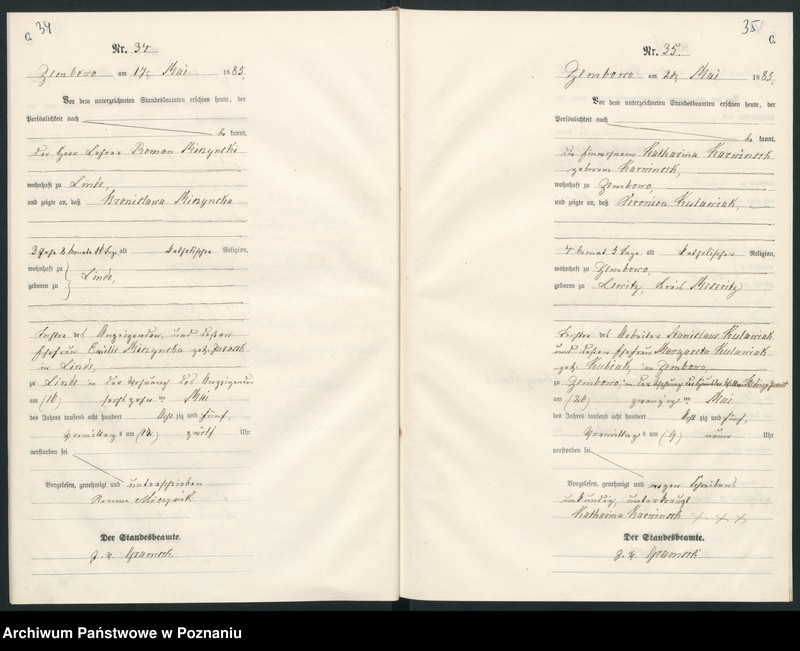 34
C.
Nr. 34
Zembowo am 17. Mai 1885,
Vor dem unterzeichneten Standesbeamten erschien heute, der
Persönlichkeit nach
be kannt,
der Herr Lehrer Roman
wohnhaft zu Linde,
und zeigte an, daß Bronislawa
3 Jahr 2 Monate alt katholischer Religion,
wohnhaft zu Linde,
geboren zu
Tochter des Anzeigenden, und dessen
Ehefrau Emilie geb.
in Linde,
zu Linde in der Wohnung des Anzeigenden
am (16) sechszehn ten Mai
des Jahres tausend acht hundert Acht zig und fünf,
Vormittag s um (12) zwölf Uhr
verstorben sei
Vorgelesen, genehmigt und unterschrieben
Der Standesbeamte.
35
C.
Nr. 35.
Zembowo am 20. Mai 1885,
Vor dem unterzeichneten Standesbeamten erschien heute, der
Persönlichkeit nach
be kannt,
die Katharina
geborene
wohnhaft zu Zembowo,
und zeigte an, daß Veronica Kulawiak,
Monat 3 Tage alt katholischer Religion,
wohnhaft zu Zembowo,
geboren zu Lewitz, Kreis Meseritz
Tochter des Arbeiter Stanislaus Kulawiak
und dessen Ehefrau Margareta Kulawiak
geb. Kubiak, in Zembowo,
zu Zembowo, in der Wohnung des
am (20) zwanzig ten Mai
des Jahres tausend acht hundert Acht zig und fünf,
Vormittag s um (9) neun Uhr
verstorben sei
Vorgelesen, genehmigt und wegen Schreibens
unkundig, unterkreuzt
Katharina + + +
Der Standesbeamte.
Archiwum Państwowe w Poznaniu